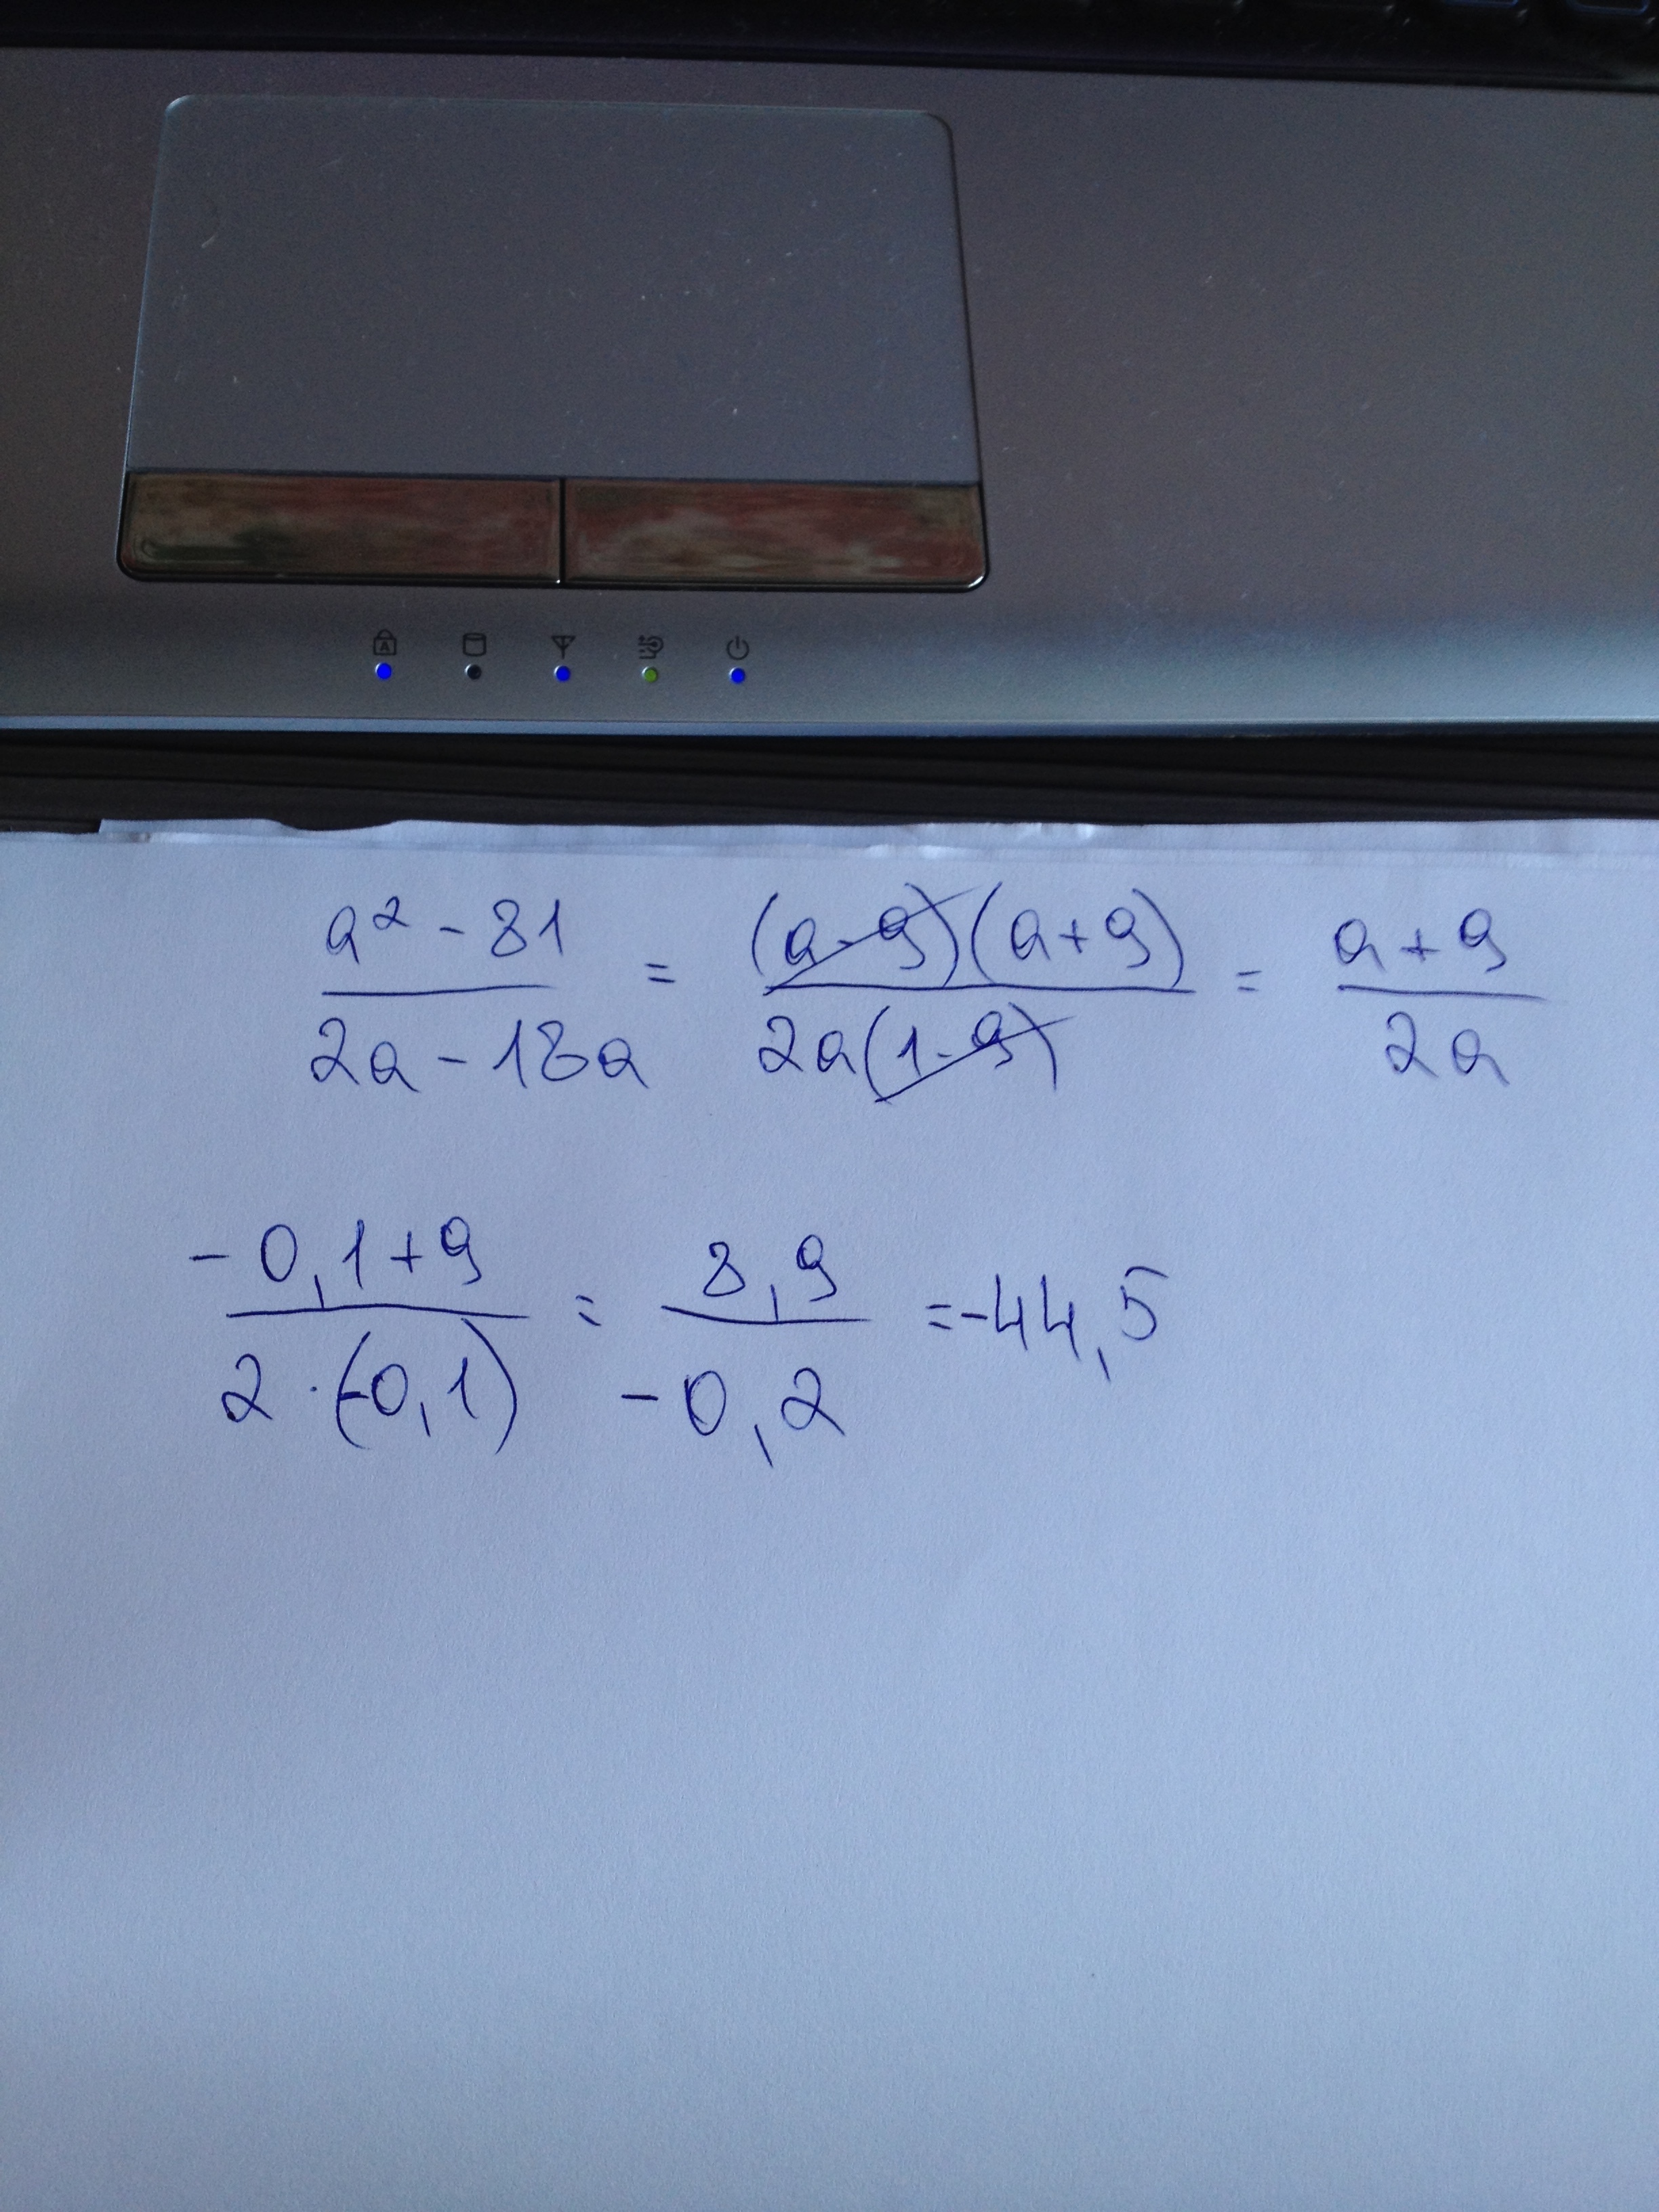 (a² - 81)/(2a - 18a) = ((a-9)(a+9))/(2a(1-9)) = (a+9)/(2a)
(-0,1+9)/(2·(-0,1)) = (8,9)/(-0,2) = -44,5